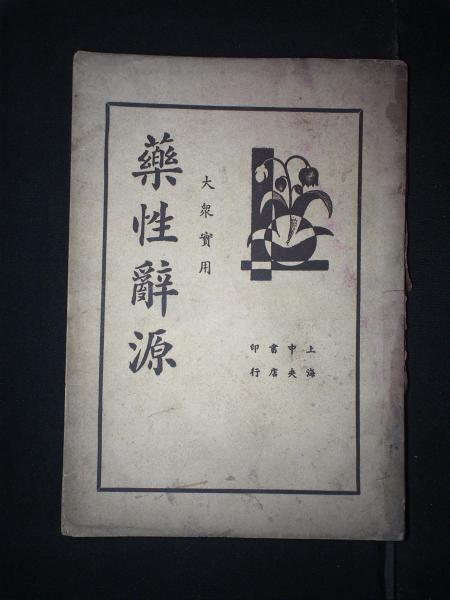 上海
中央
書店
印行
大眾實用
藥性辭源